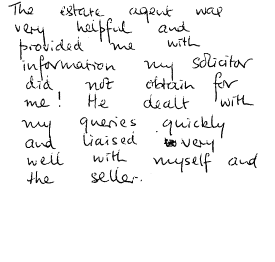 The estate agent was
very helpful and
provided me with
information my solicitor
did not obtain for
me! He dealt with
my queries quickly
and liaised very
well with myself and
the seller.